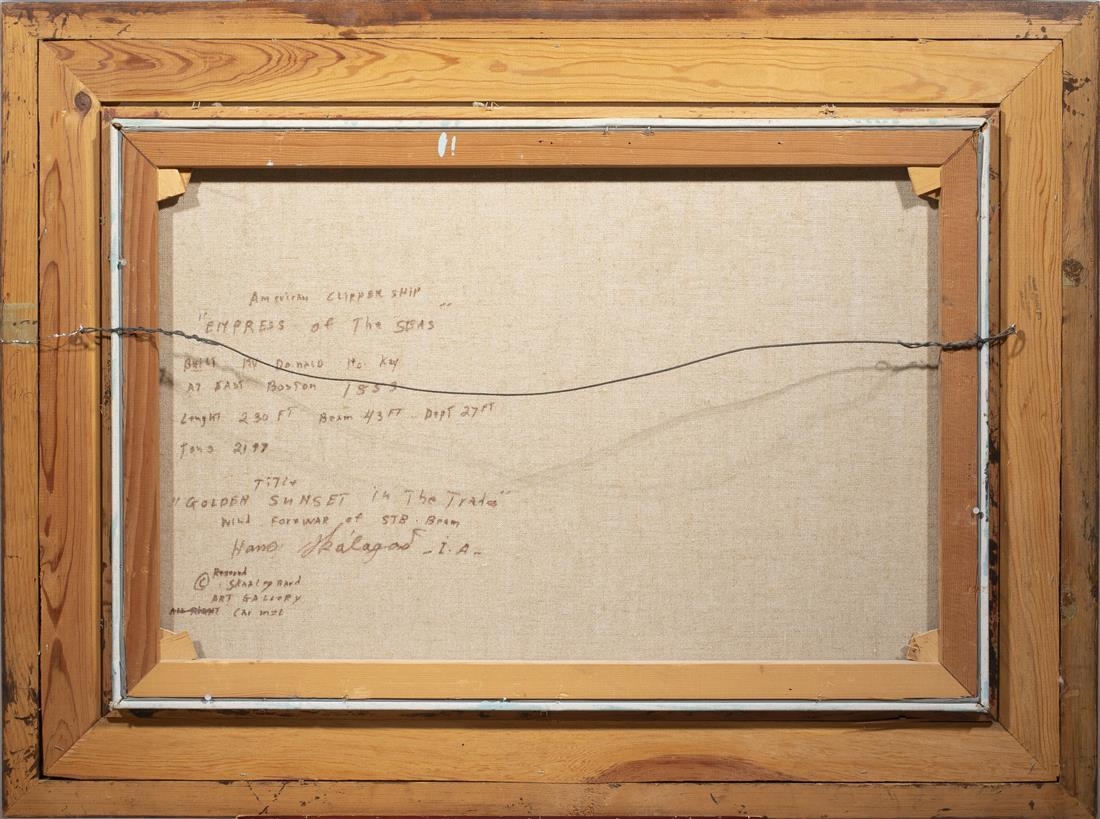 American Clipper Ship
"EMPRESS of The SEAS"
Built By Donald Mc. Kay
AT EAST Boston 1853
Lenght 230 FT Beam 43 FT - Dept 27 FT
Tons 2197
TiTle
"GOLDEN SUNSET in The Trades"
Wind Forewar of STB. Beam
Hans Skálagard - I.A -
Reserved
© Skaalegaard
ART GALLERY
ALL RIGHT Carmel